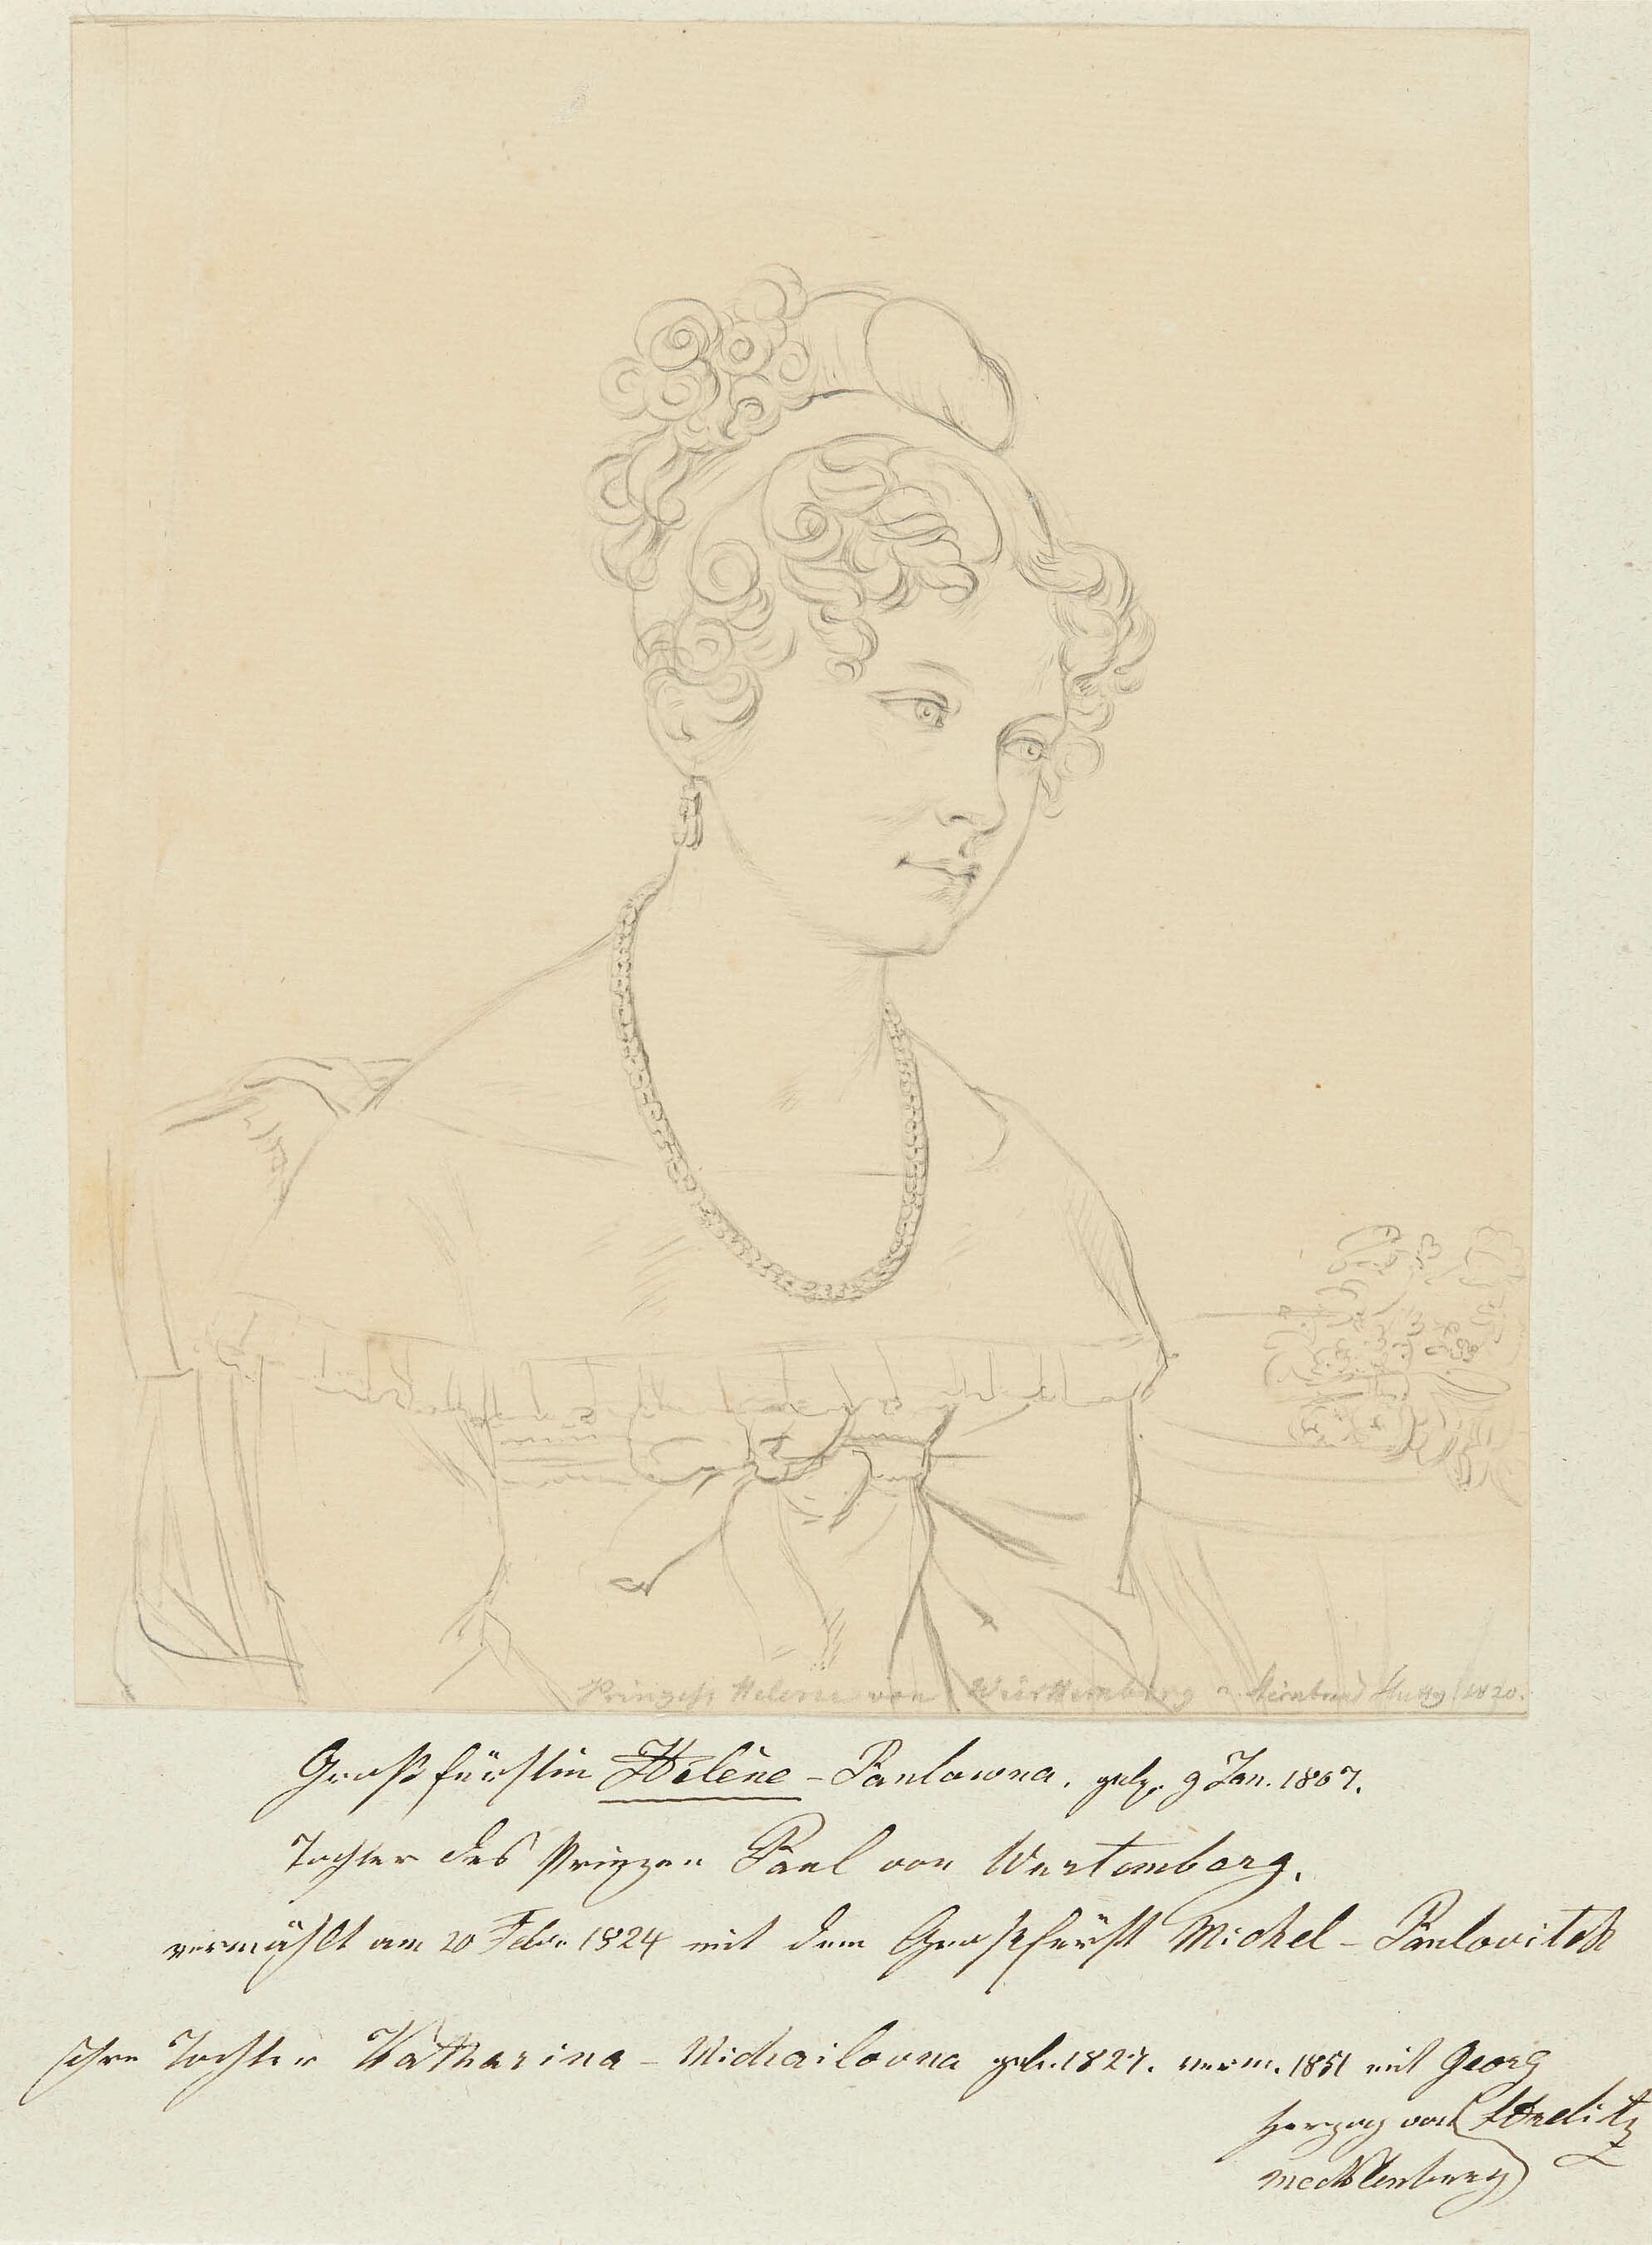 Prinzess Helene von Württemberg Stuttg. 1820.
Großfürstin Helène - Paulowna. geb. 9 Jan. 1807.
Tochter des Prinzen Paul von Wurtemberg.
vermählt am 20 Febr. 1824 mit dem Großfürst Michel - Paulovitch
Ihre Tochter Katharina - Michailovna geb. 1827. verm. 1851 mit Georg
Herzog von Strelitz
Mecklenburg